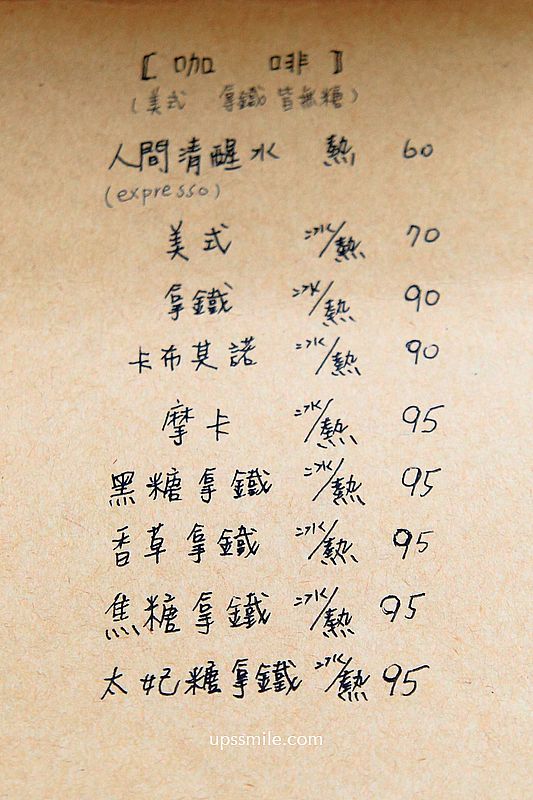 【咖 啡】
(美式 拿鐵 皆無糖)
人間清醒水 熱 60
(expresso)
美式 冰/熱 70
拿鐵 冰/熱 90
卡布其諾 冰/熱 90
摩卡 冰/熱 95
黑糖拿鐵 冰/熱 95
香草拿鐵 冰/熱 95
焦糖拿鐵 冰/熱 95
太妃糖拿鐵 冰/熱 95
upssmile.com